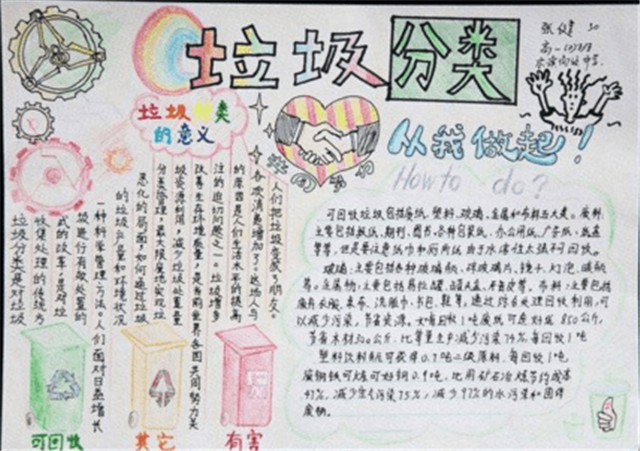 垃圾分类
从我做起！
How to do?
张
高一
垃圾分类
的意义
垃圾分类是对垃圾
收集处理的传统方
式的改革，是对垃
圾进行有效处置的
一种科学管理方法。人们面对日益增长
的垃圾产量和环境状况
恶化的局面，如何通过垃圾
分类管理，最大限度地实现垃
圾资源利用，减少垃圾处置量
改善生存环境质量，是当前世界各国共同努力关
注的迫切问题之一。垃圾增多
的原因是人们生活水平的提高
各项消费增加了
人们把垃圾变成了朋友。
可回收垃圾包括废纸、塑料、玻璃、金属和布料五大类。废纸：
主要包括报纸、期刊、图书、各种包装纸、办公用纸、广告纸、纸盒
等等，但是要注意纸巾和厕所纸由于水溶性太强不可回收。
玻璃：主要包括各种玻璃瓶、碎玻璃片、镜子、灯泡、暖瓶
等。金属物：主要包括易拉罐、罐头盒、牙膏皮等。布料：主要包括
废弃衣服、桌布、洗脸巾、书包、鞋等，通过综合处理回收利用，可
以减少污染，节省资源。如每回收1吨废纸可造好纸850公斤，
节省木材300公斤，比等量生产减少污染74%，每回收1吨
塑料饮料瓶可获得0.7吨二级原料，每回收1吨
废钢铁可炼好钢0.9吨，比用矿石冶炼节约成本
47%，减少空气污染75%，减少97%的水污染和固体
废物。
可回收
其它
有害